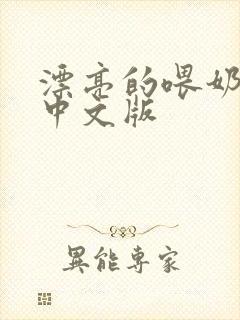 漂亮的喂奶
中文版
異能專家